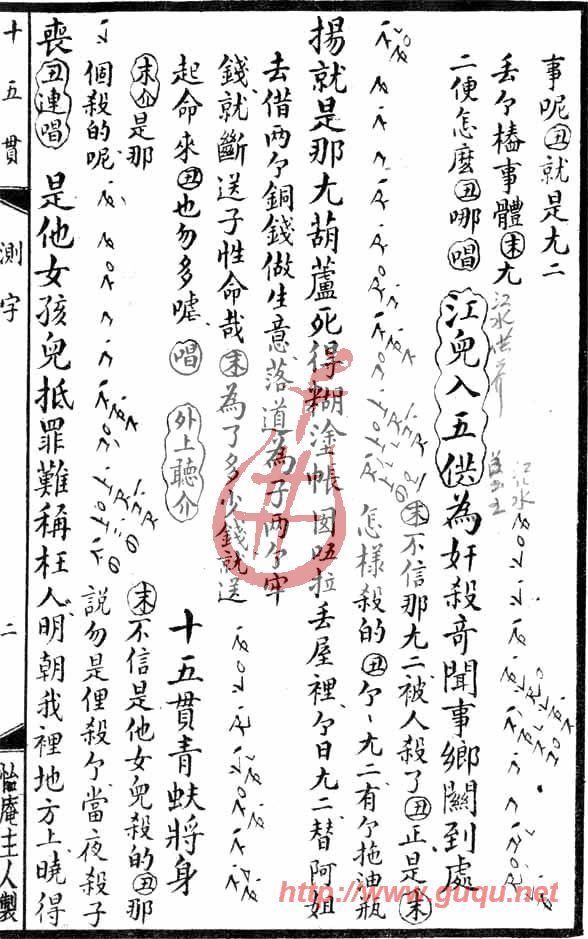 事呢丑就是尤二
丢个樁事體末尤
二便怎麽丑哪唱
江水供养
江兒入五供為奸殺奇聞事鄉關到處
江儿水
末不信那尤二被人殺了丑正是末
怎樣殺的丑个丶尤二有个拖油瓶
揚就是那尤葫蘆死得糊塗帳囡唔拉丢屋裡个日尤二替阿姐
去借两个銅錢做生意落道為子两个牢
錢就斷送子性命哉末為了多少錢就送
起命來丑也勿多嘘唱外上聽介十五貫青蚨將身
末介是那
個殺的呢
末不信是他女兒殺的丑那
說勿是俚殺个當夜殺子
喪丑連唱是他女孩兒抵罪難稱枉人明朝我裡地方上曉得
十五貫
測字
二
怡庵主人製
http://www.guqu.net